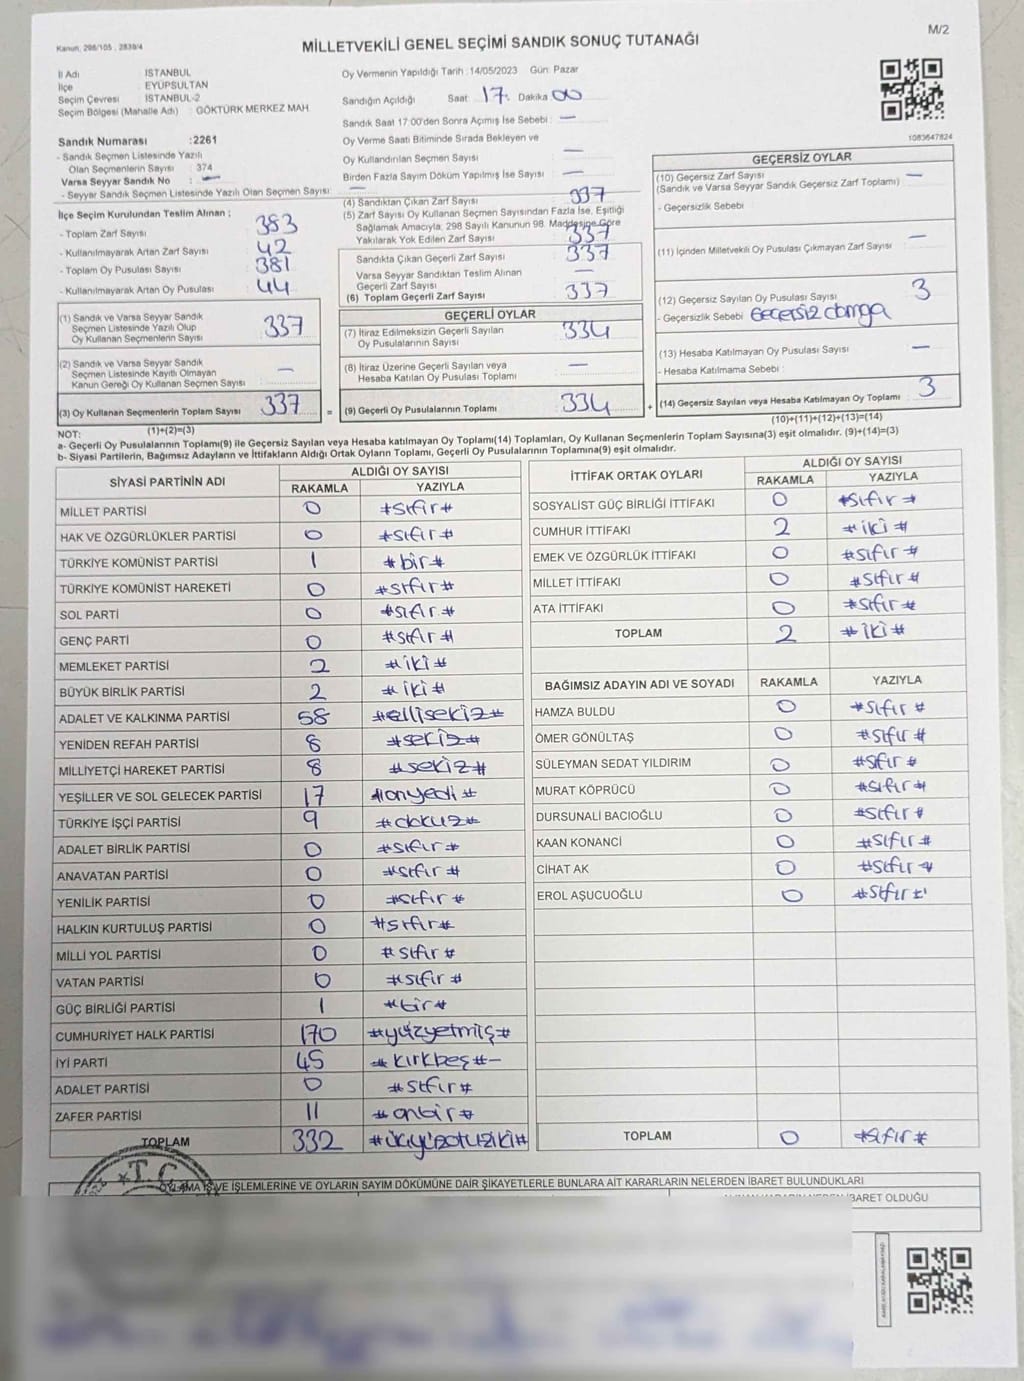 M/2
Kanun, 298/105 , 2839/4
MİLLETVEKİLİ GENEL SEÇİMİ SANDIK SONUÇ TUTANAĞI
İl Adı : İSTANBUL
İlçe : EYÜPSULTAN
Seçim Çevresi : İSTANBUL-2
Seçim Bölgesi (Mahalle Adı) : GÖKTÜRK MERKEZ MAH.
Sandık Numarası :2261
- Sandık Seçmen Listesinde Yazılı
Olan Seçmenlerin Sayısı : 374
Varsa Seyyar Sandık No : —
- Seyyar Sandık Seçmen Listesinde Yazılı Olan Seçmen Sayısı: —
Oy Vermenin Yapıldığı Tarih :14/05/2023 Gün: Pazar
Sandığın Açıldığı Saat 17: Dakika 00
Sandık Saat 17:00'den Sonra Açılmış İse Sebebi : —
Oy Verme Saati Bitiminde Sırada Bekleyen ve
Oy Kullandırılan Seçmen Sayısı —
Birden Fazla Sayım Döküm Yapılmış İse Sayısı : —
1083647824
İlçe Seçim Kurulundan Teslim Alınan ;
- Toplam Zarf Sayısı : 383
- Kullanılmayarak Artan Zarf Sayısı : 42
- Toplam Oy Pusulası Sayısı : 381
- Kullanılmayarak Artan Oy Pusulası : 44
(1) Sandık ve Varsa Seyyar Sandık
Seçmen Listesinde Yazılı Olup
Oy Kullanan Seçmenlerin Sayısı : 337
(2) Sandık ve Varsa Seyyar Sandık
Seçmen Listesinde Kayıtlı Olmayan
Kanun Gereği Oy Kullanan Seçmen Sayısı : —
(3) Oy Kullanan Seçmenlerin Toplam Sayısı : 337 =
(1)+(2)=(3)
(4) Sandıktan Çıkan Zarf Sayısı : 337
(5) Zarf Sayısı Oy Kullanan Seçmen Sayısından Fazla İse, Eşitliği
Sağlamak Amacıyla; 298 Sayılı Kanunun 98. Maddesine Göre
Yakılarak Yok Edilen Zarf Sayısı : 337
Sandıkta Çıkan Geçerli Zarf Sayısı : 337
Varsa Seyyar Sandıktan Teslim Alınan
Geçerli Zarf Sayısı : —
(6) Toplam Geçerli Zarf Sayısı : 337
GEÇERLİ OYLAR
(7) İtiraz Edilmeksizin Geçerli Sayılan
Oy Pusulalarının Sayısı : 334
(8) İtiraz Üzerine Geçerli Sayılan veya
Hesaba Katılan Oy Pusulası Toplamı : —
(9) Geçerli Oy Pusulalarının Toplamı : 334 +
GEÇERSİZ OYLAR
(10) Geçersiz Zarf Sayısı : —
(Sandık ve Varsa Seyyar Sandık Geçersiz Zarf Toplamı)
- Geçersizlik Sebebi :
(11) İçinden Milletvekili Oy Pusulası Çıkmayan Zarf Sayısı : —
(12) Geçersiz Sayılan Oy Pusulası Sayısı : 3
- Geçersizlik Sebebi : Geçersiz damga
(13) Hesaba Katılmayan Oy Pusulası Sayısı : —
- Hesaba Katılmama Sebebi :
(14) Geçersiz Sayılan veya Hesaba Katılmayan Oy Toplamı : 3
(10)+(11)+(12)+(13)=(14)
NOT:
a- Geçerli Oy Pusulalarının Toplamı(9) ile Geçersiz Sayılan veya Hesaba katılmayan Oy Toplamı(14) Toplamları, Oy Kullanan Seçmenlerin Toplam Sayısına(3) eşit olmalıdır. (9)+(14)=(3)
b- Siyasi Partilerin, Bağımsız Adayların ve İttifakların Aldığı Ortak Oyların Toplamı, Geçerli Oy Pusulalarının Toplamına(9) eşit olmalıdır.
SİYASİ PARTİNİN ADI
ALDIĞI OY SAYISI
RAKAMLA YAZIYLA
MİLLET PARTİSİ 0 #sıfır#
HAK VE ÖZGÜRLÜKLER PARTİSİ 0 #sıfır#
TÜRKİYE KOMÜNİST PARTİSİ 1 #bir#
TÜRKİYE KOMÜNİST HAREKETİ 0 #sıfır#
SOL PARTİ 0 #sıfır#
GENÇ PARTİ 0 #sıfır#
MEMLEKET PARTİSİ 2 #iki#
BÜYÜK BİRLİK PARTİSİ 2 #iki#
ADALET VE KALKINMA PARTİSİ 58 #ellisekiz#
YENİDEN REFAH PARTİSİ 8 #sekiz#
MİLLİYETÇİ HAREKET PARTİSİ 8 #sekiz#
YEŞİLLER VE SOL GELECEK PARTİSİ 17 #onyedi#
TÜRKİYE İŞÇİ PARTİSİ 9 #dokuz#
ADALET BİRLİK PARTİSİ 0 #sıfır#
ANAVATAN PARTİSİ 0 #sıfır#
YENİLİK PARTİSİ 0 #sıfır#
HALKIN KURTULUŞ PARTİSİ 0 #sıfır#
MİLLİ YOL PARTİSİ 0 #sıfır#
VATAN PARTİSİ 0 #sıfır#
GÜÇ BİRLİĞİ PARTİSİ 1 #bir#
CUMHURİYET HALK PARTİSİ 170 #yüzyetmiş#
İYİ PARTİ 45 #kırkbeş#
ADALET PARTİSİ 0 #sıfır#
ZAFER PARTİSİ 11 #onbir#
TOPLAM 332 #üçyüzotuziki#
İTTİFAK ORTAK OYLARI
ALDIĞI OY SAYISI
RAKAMLA YAZIYLA
SOSYALİST GÜÇ BİRLİĞİ İTTİFAKI 0 #sıfır#
CUMHUR İTTİFAKI 2 #iki#
EMEK VE ÖZGÜRLÜK İTTİFAKI 0 #sıfır#
MİLLET İTTİFAKI 0 #sıfır#
ATA İTTİFAKI 0 #sıfır#
TOPLAM 2 #iki#
BAĞIMSIZ ADAYIN ADI VE SOYADI RAKAMLA YAZIYLA
HAMZA BULDU 0 #sıfır#
ÖMER GÖNÜLTAŞ 0 #sıfır#
SÜLEYMAN SEDAT YILDIRIM 0 #sıfır#
MURAT KÖPRÜCÜ 0 #sıfır#
DURSUNALİ BACIOĞLU 0 #sıfır#
KAAN KONANCİ 0 #sıfır#
CİHAT AK 0 #sıfır#
EROL AŞUCUOĞLU 0 #sıfır#
TOPLAM 0 #sıfır#
T.C.
OYLAMA İŞ VE İŞLEMLERİNE VE OYLARIN SAYIM DÖKÜMÜNE DAİR ŞİKAYETLERLE BUNLARA AİT KARARLARIN NELERDEN İBARET BULUNDUKLARI
İBARET OLDUĞU